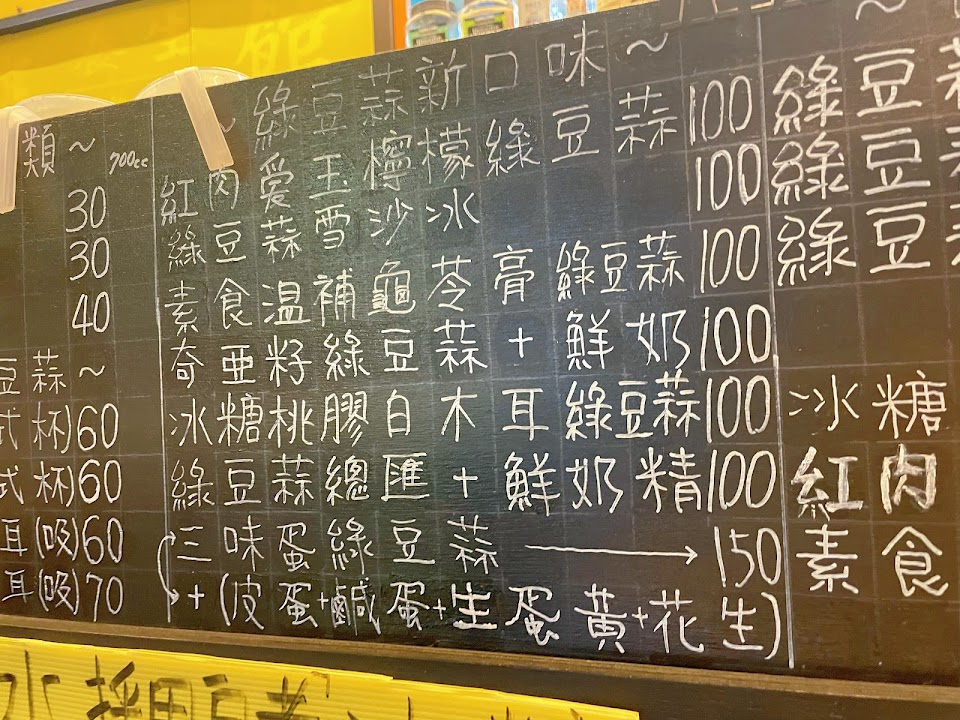 類~ 700cc
30
30
40
豆蒜~
式杯)60
式杯)60
耳(吸)60
耳(吸)70
~綠豆蒜新口味~
紅肉愛玉檸檬綠豆蒜100
綠豆蒜雪沙冰 100
素食温補龜苓膏綠豆蒜100
奇亜籽綠豆蒜+鮮奶100
冰糖桃膠白木耳綠豆蒜100
綠豆蒜總匯+鮮奶精100
三味蛋綠豆蒜→150
+(皮蛋+鹹蛋+生蛋黃+花生)
~
綠豆蒜
綠豆蒜
綠豆蒜
冰糖
紅肉
素食